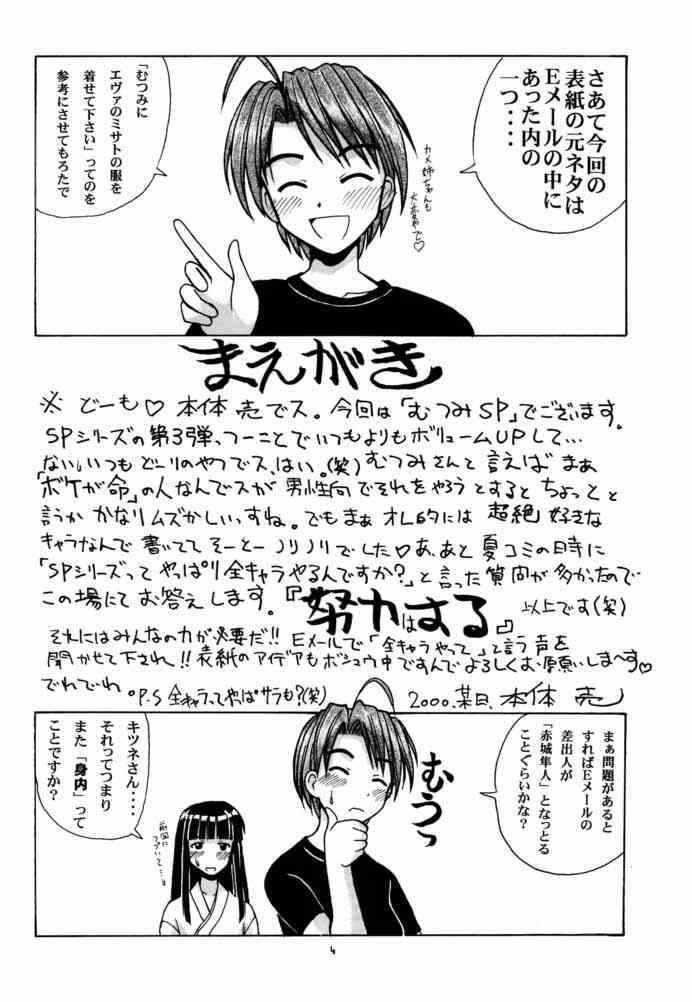 さあて今回の
表紙の元ネタは
Eメールの中に
あった内の
一つ・・・
カメ姉ちゃんも
大変やで♡
「むつみに
エヴァのミサトの服を
着せて下さい」ってのを
参考にさせてもろたで
まえがき
※ どーも♡ 本体 売でス。今回は「むつみSP」でございます。
SPシリーズの第3弾、つーことでいつもよりもボリュームUPして…
ないいつもどーりのやつでス、はい。(笑)むつみさんと言えば まあ
「ボケが命」の人なんでスが 男性向でそれをやろうとするとちょっとと
言うか かなりムズかしいっすね。でもまぁ オレ的には 超絶 好きな
キャラなんで 書いてて そーとーノリノリでした♡ あ、あと 夏コミの時に
「SPシリーズって やっぱり全キャラやるんですか?」と言った質問が多かったので
この場にて お答えします。『努力はする』 以上です(笑)
それにはみんなの力が必要だ!! Eメールで「全キャラやって」と言う声を
聞かせて下され!! 表紙のアイデアもボシュウ中ですんでよろしくお願いしま〜す♡
でわでわ。P.S 全キャラってやっぱサラも?(笑) 2000.某日、本体 売
まぁ問題があると
すればEメールの
差出人が
「赤城隼人」となっとる
ことぐらいかな?
むうっ
キツネさん・・・・
それってつまり
また「身内」って
ことですか?
前回に
つづいて…
4